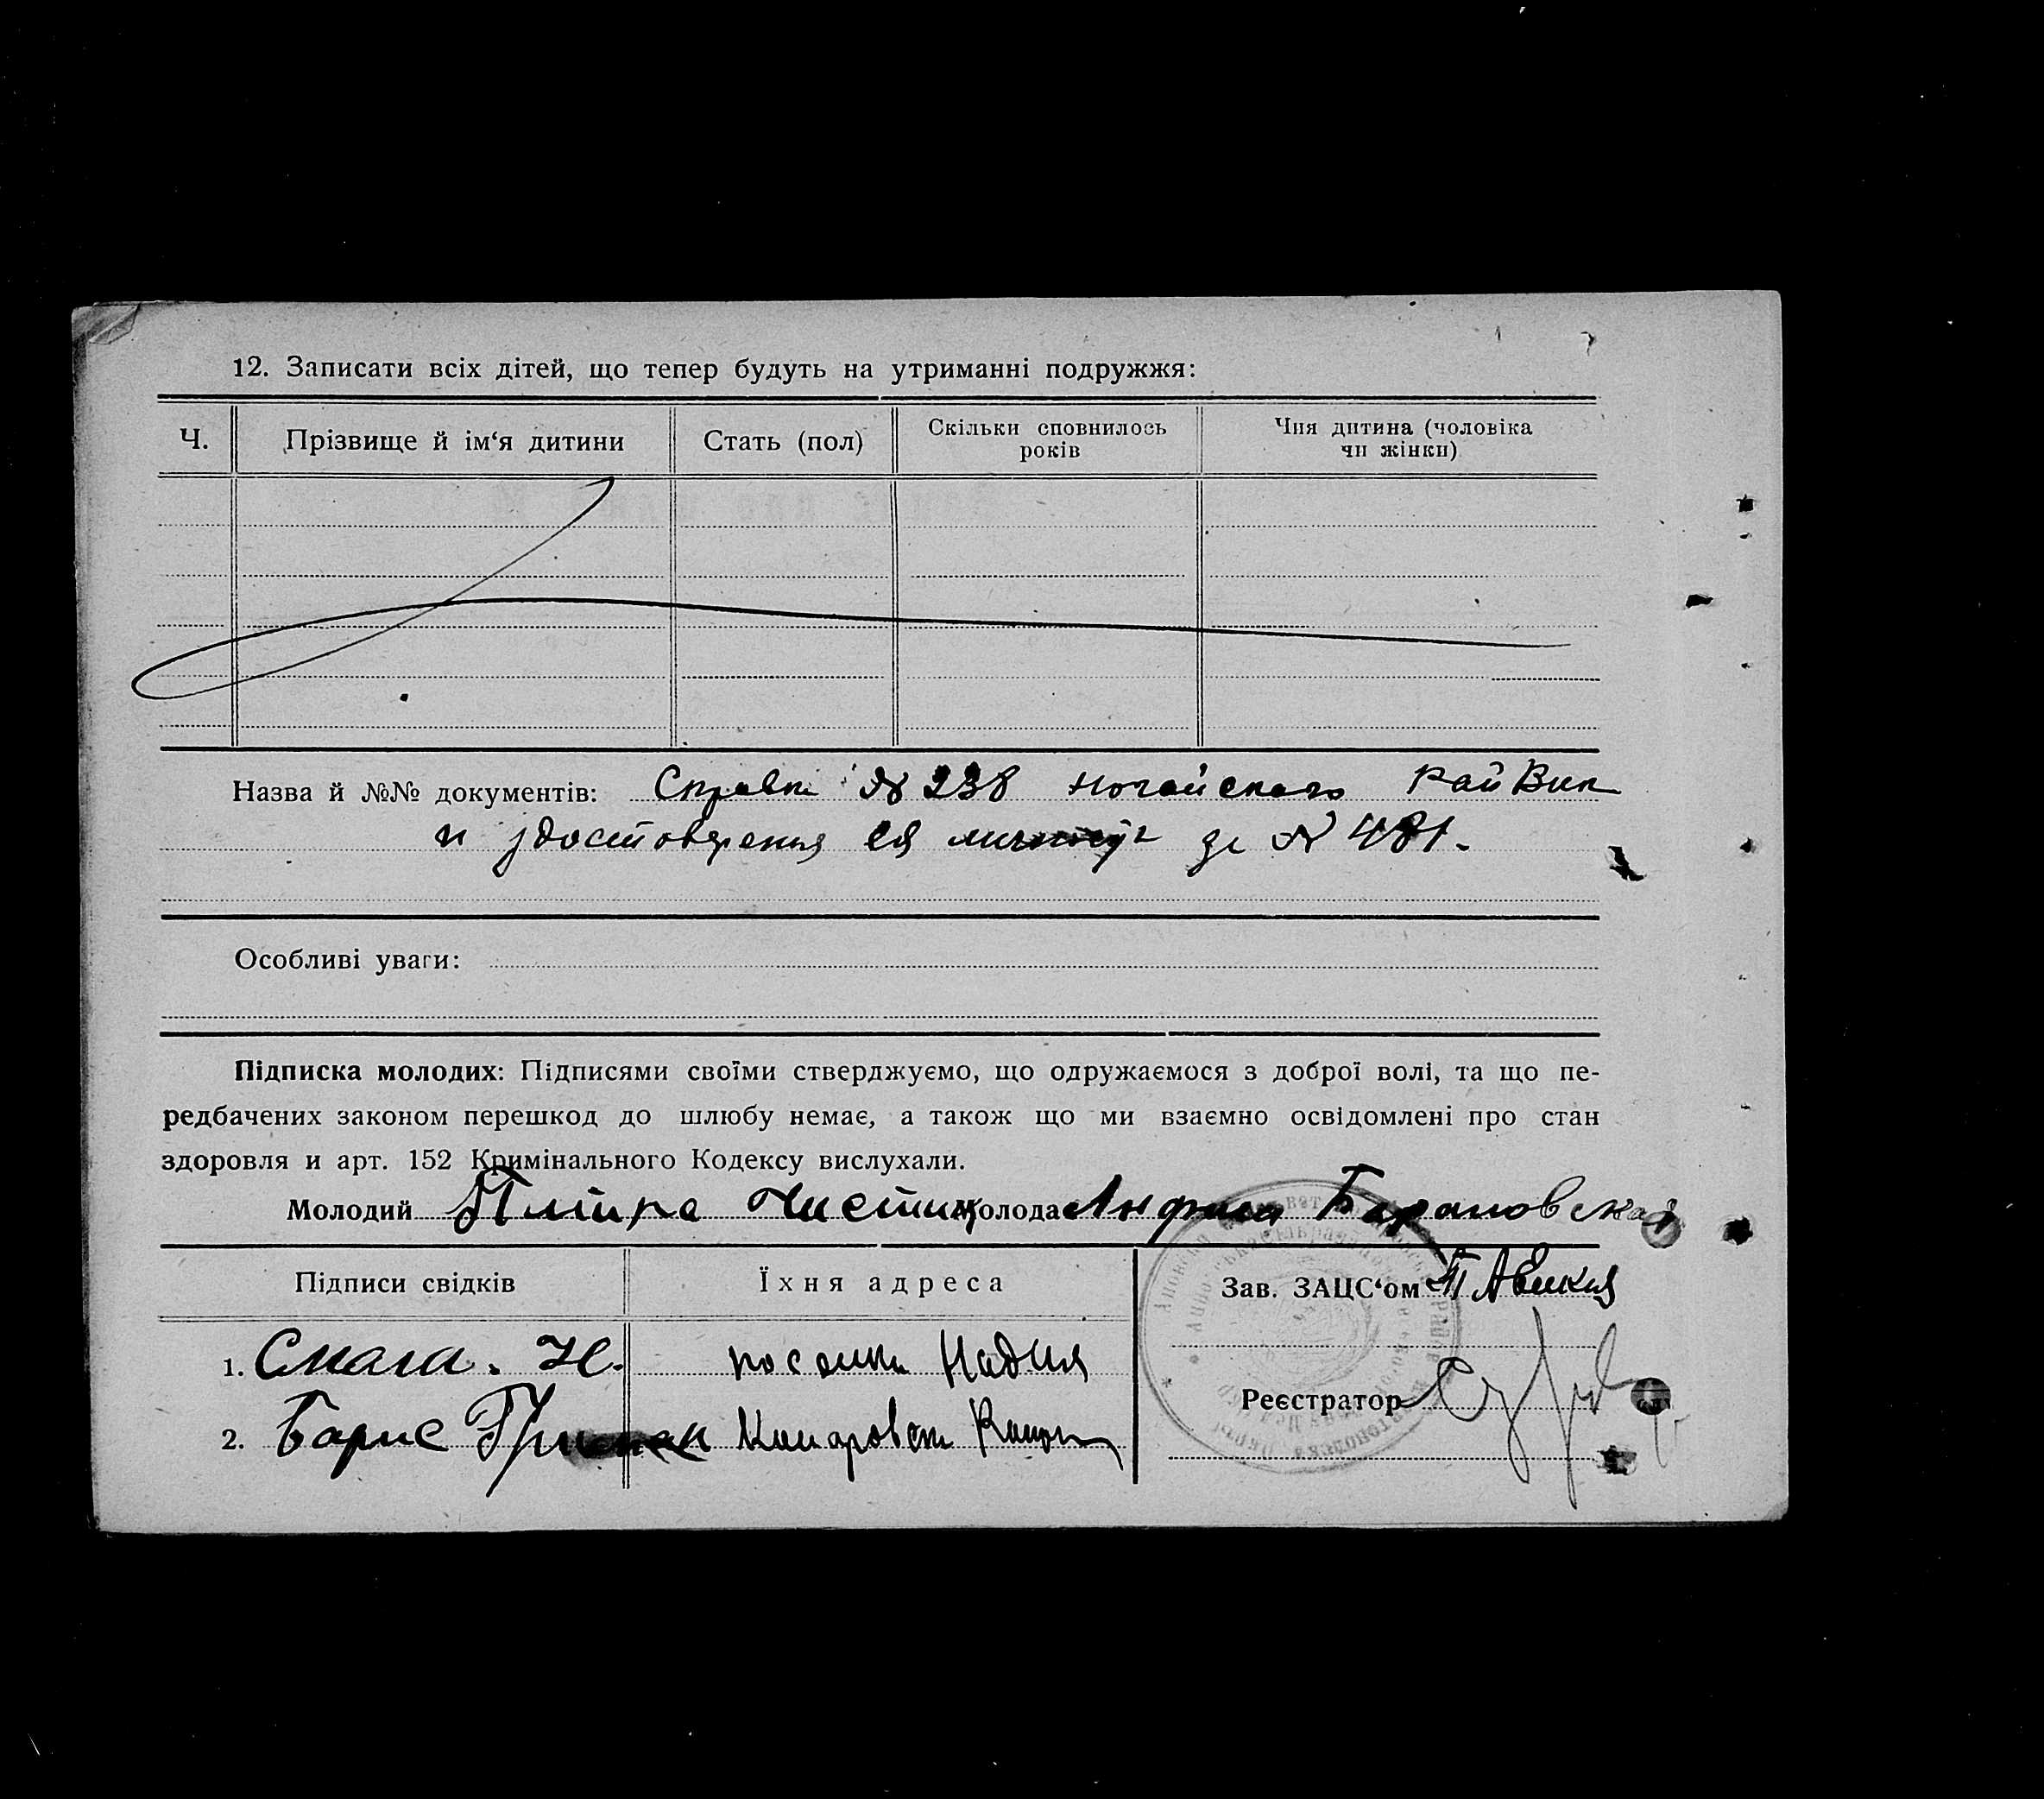 12. Записати всіх дітей, що тепер будуть на утриманні подружжя:
Ч. Прізвище й ім‘я дитини Стать (пол) Скільки сповнилось років Чия дитина (чоловіка чи жінки)
Назва й №№ документів: Справки № 238 Ногайского РайВик
и удостоверения ея за № 481.
Особливі уваги:
Підписка молодих: Підписями своїми стверджуємо, що одружаємося з доброї волі, та що пе-
редбачених законом перешкод до шлюбу немає, а також що ми взаємно освідомлені про стан
здоровля и арт. 152 Кримінального Кодексу вислухали.
Молодий Молода Анфиса Барановская
Підписи свідків Їхня адреса Зав. ЗАЦС‘ом
1. Надия
Реєстратор
2. Борис